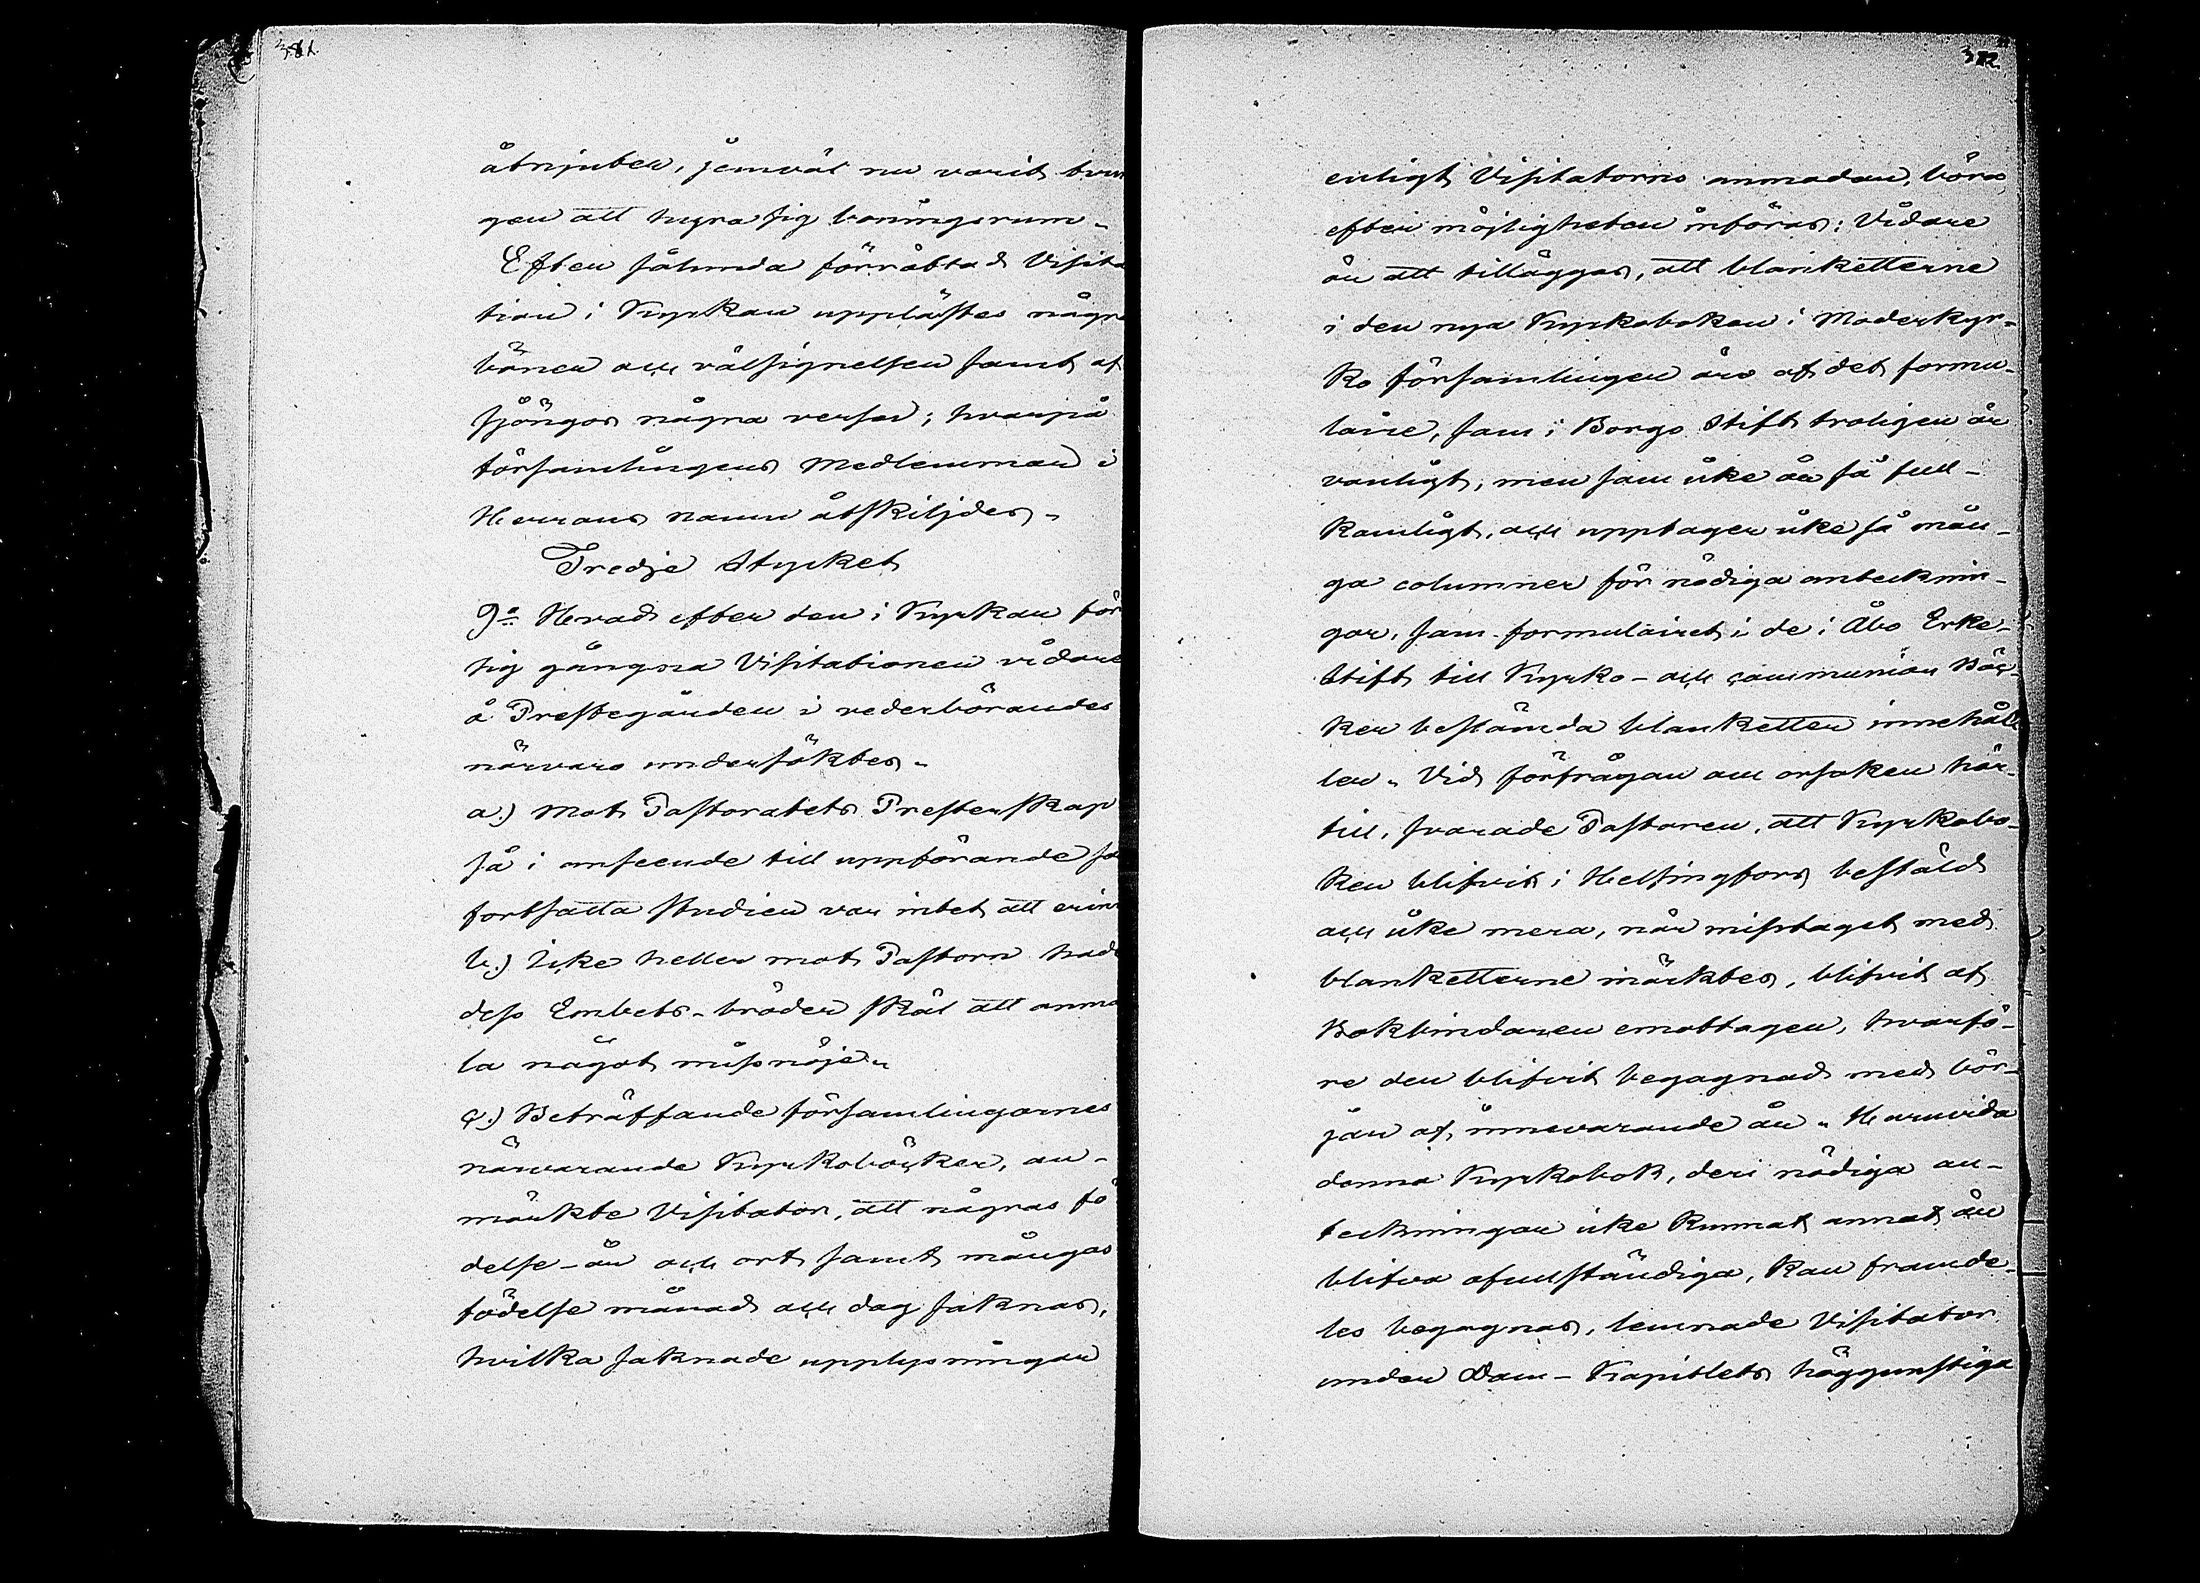 381.
åtnjuter, jemväl nu varit tvun
gen att hyra sig boningsrum.
Efter sålunda förrättad Visita
tion i Kyrkan upplästes några
böner och välsignelsen samt af
sjöngos några verser; hvarpå
församlingens medlemmar i
Herrans namn åtskiljdes.
Tredje Stycket
9:o Hvad efter den i Kyrkan för
sig gångna Visitationen vidare
å Prestegården i vederbörandes
närvaro undersöktes.
a.) Mot Pastoratets Presterskap
så i anseende till uppförande so
fortsatta studier var intet att erin
b.) Icke heller mot Pastorn hade
dess Embets-bröder skäl att anmä
la något missnöje.
c.) Beträffande församlingarnes
närvarande Kyrkoböcker, an-
märkte Visitator, att någras fö
delse-år och ort samt mångas
födelse månad och dag saknas,
hvilka saknade upplysningar
382.
enligt Visitatorns anmodan, böra
efter möjligheten införas: Vidare
är att tilläggas, att blanketterne
i den nya Kyrkoboken i Moderkyr-
ko församlingen äro af det formu-
laire, som i Borgo Stift troligen är
vanligt, men som icke är så full-
komligt, och upptager icke så mån-
ga columner för nödiga antecknin-
gar, som formulairet i de i Åbo Erke-
Stift till Kyrko- och communion Böc-
ker bestämda blanketter innehål
ler. Vid förfrågan om orsaken här-
till, svarade Pastoren, att Kyrkobo-
ken blifvit i Helsingfors bestäld
och icke mera, när misstaget med
blanketterne märktes, blifvit af
Bokbindaren emottagen, hvarfö-
re den blifvit begagnad med bör-
jan af innevarande år. Huruvida
denna Kyrkobok, deri nödiga an-
teckningar icke kunnat annat än
blifva ofullständiga, kan framde-
les begagnas, lemnade Visitator
under Dom-Kapitlets höggunstiga